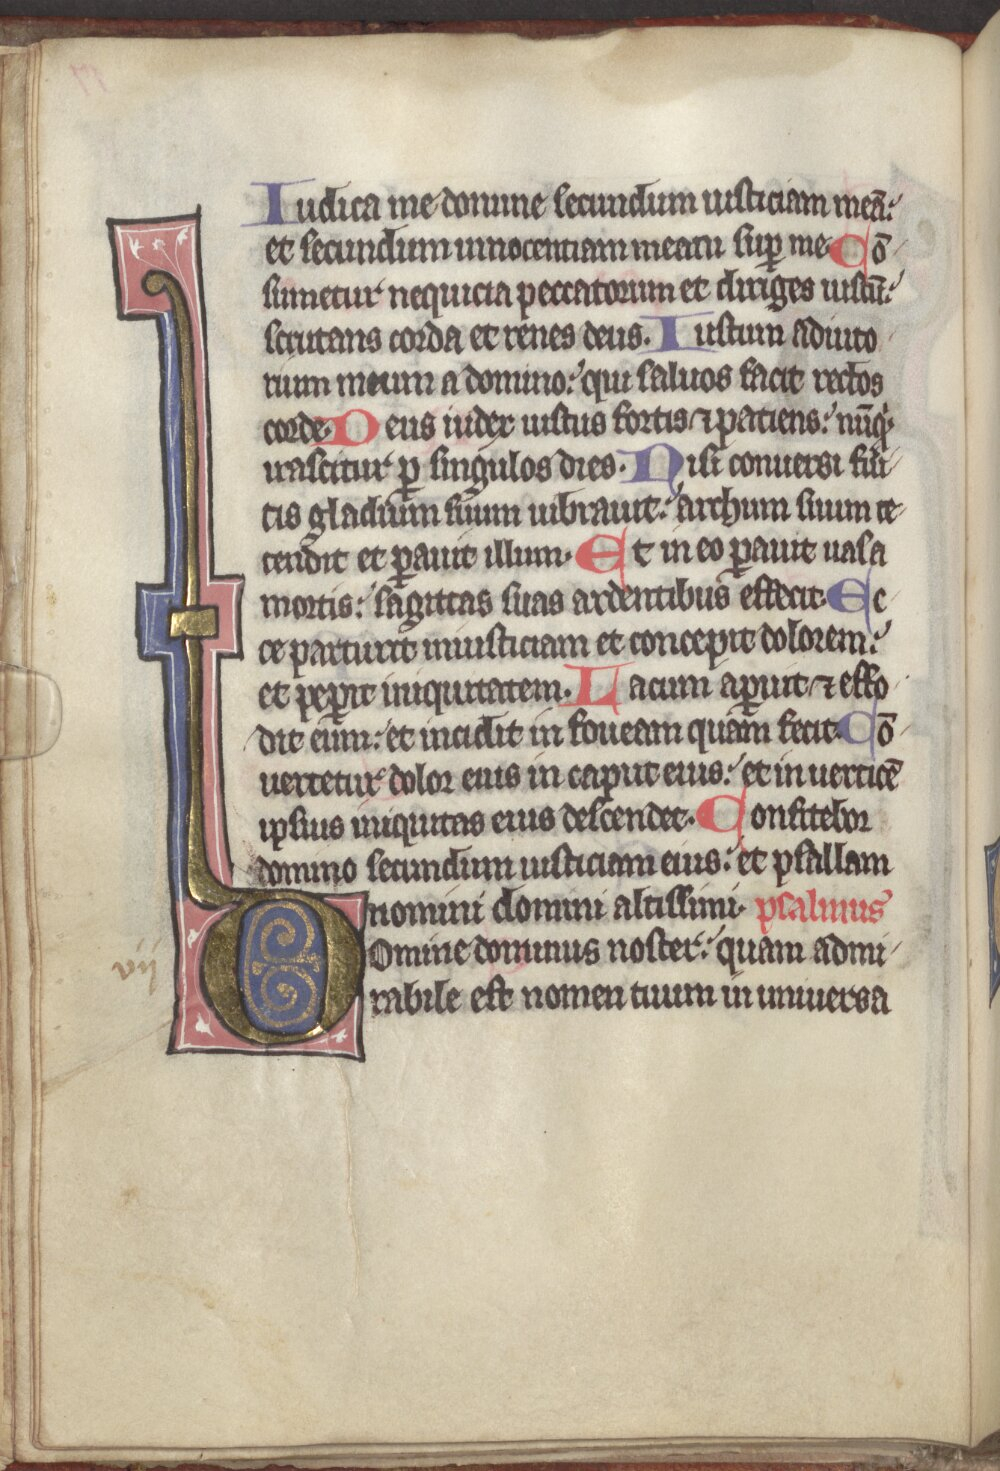 Iudica me domine secundum iusticiam meā:
et secundum innocentiam meam sup̱ me. Cō
sumetur nequicia peccatorum et diriges iustū:
scrutans corda et renes deus. Iustum adiuto
rium meum a domino: qui saluos facit rectos
corde. Deus iudex iustus fortis ⁊ patiens: nūq̇
irascitur p̱ singulos dies. Nisi conuersi fuī
tis gladium suum uibrauit: archum suum te
tendit et p̱auit illum. Et in eo p̱auit uasa
mortis: sagittas suas ardentibus effecit. Ec
ce parturit iniusticiam et concepit dolorem:
et pep̱it iniquitatem. Lacum ap̱uit ⁊ effo
dit eum: et incidit in foueam quam fecit. Cō
uertetur dolor eius in caput eius: et in uerticē
ipsius iniquitas eius descendet. Confitebor
domino secundum iusticiam eius: et psallam
nomini domini altissimi. psalmus
Domine dominus noster: quam admi
rabile est nomen tuum in uniuersa
vii